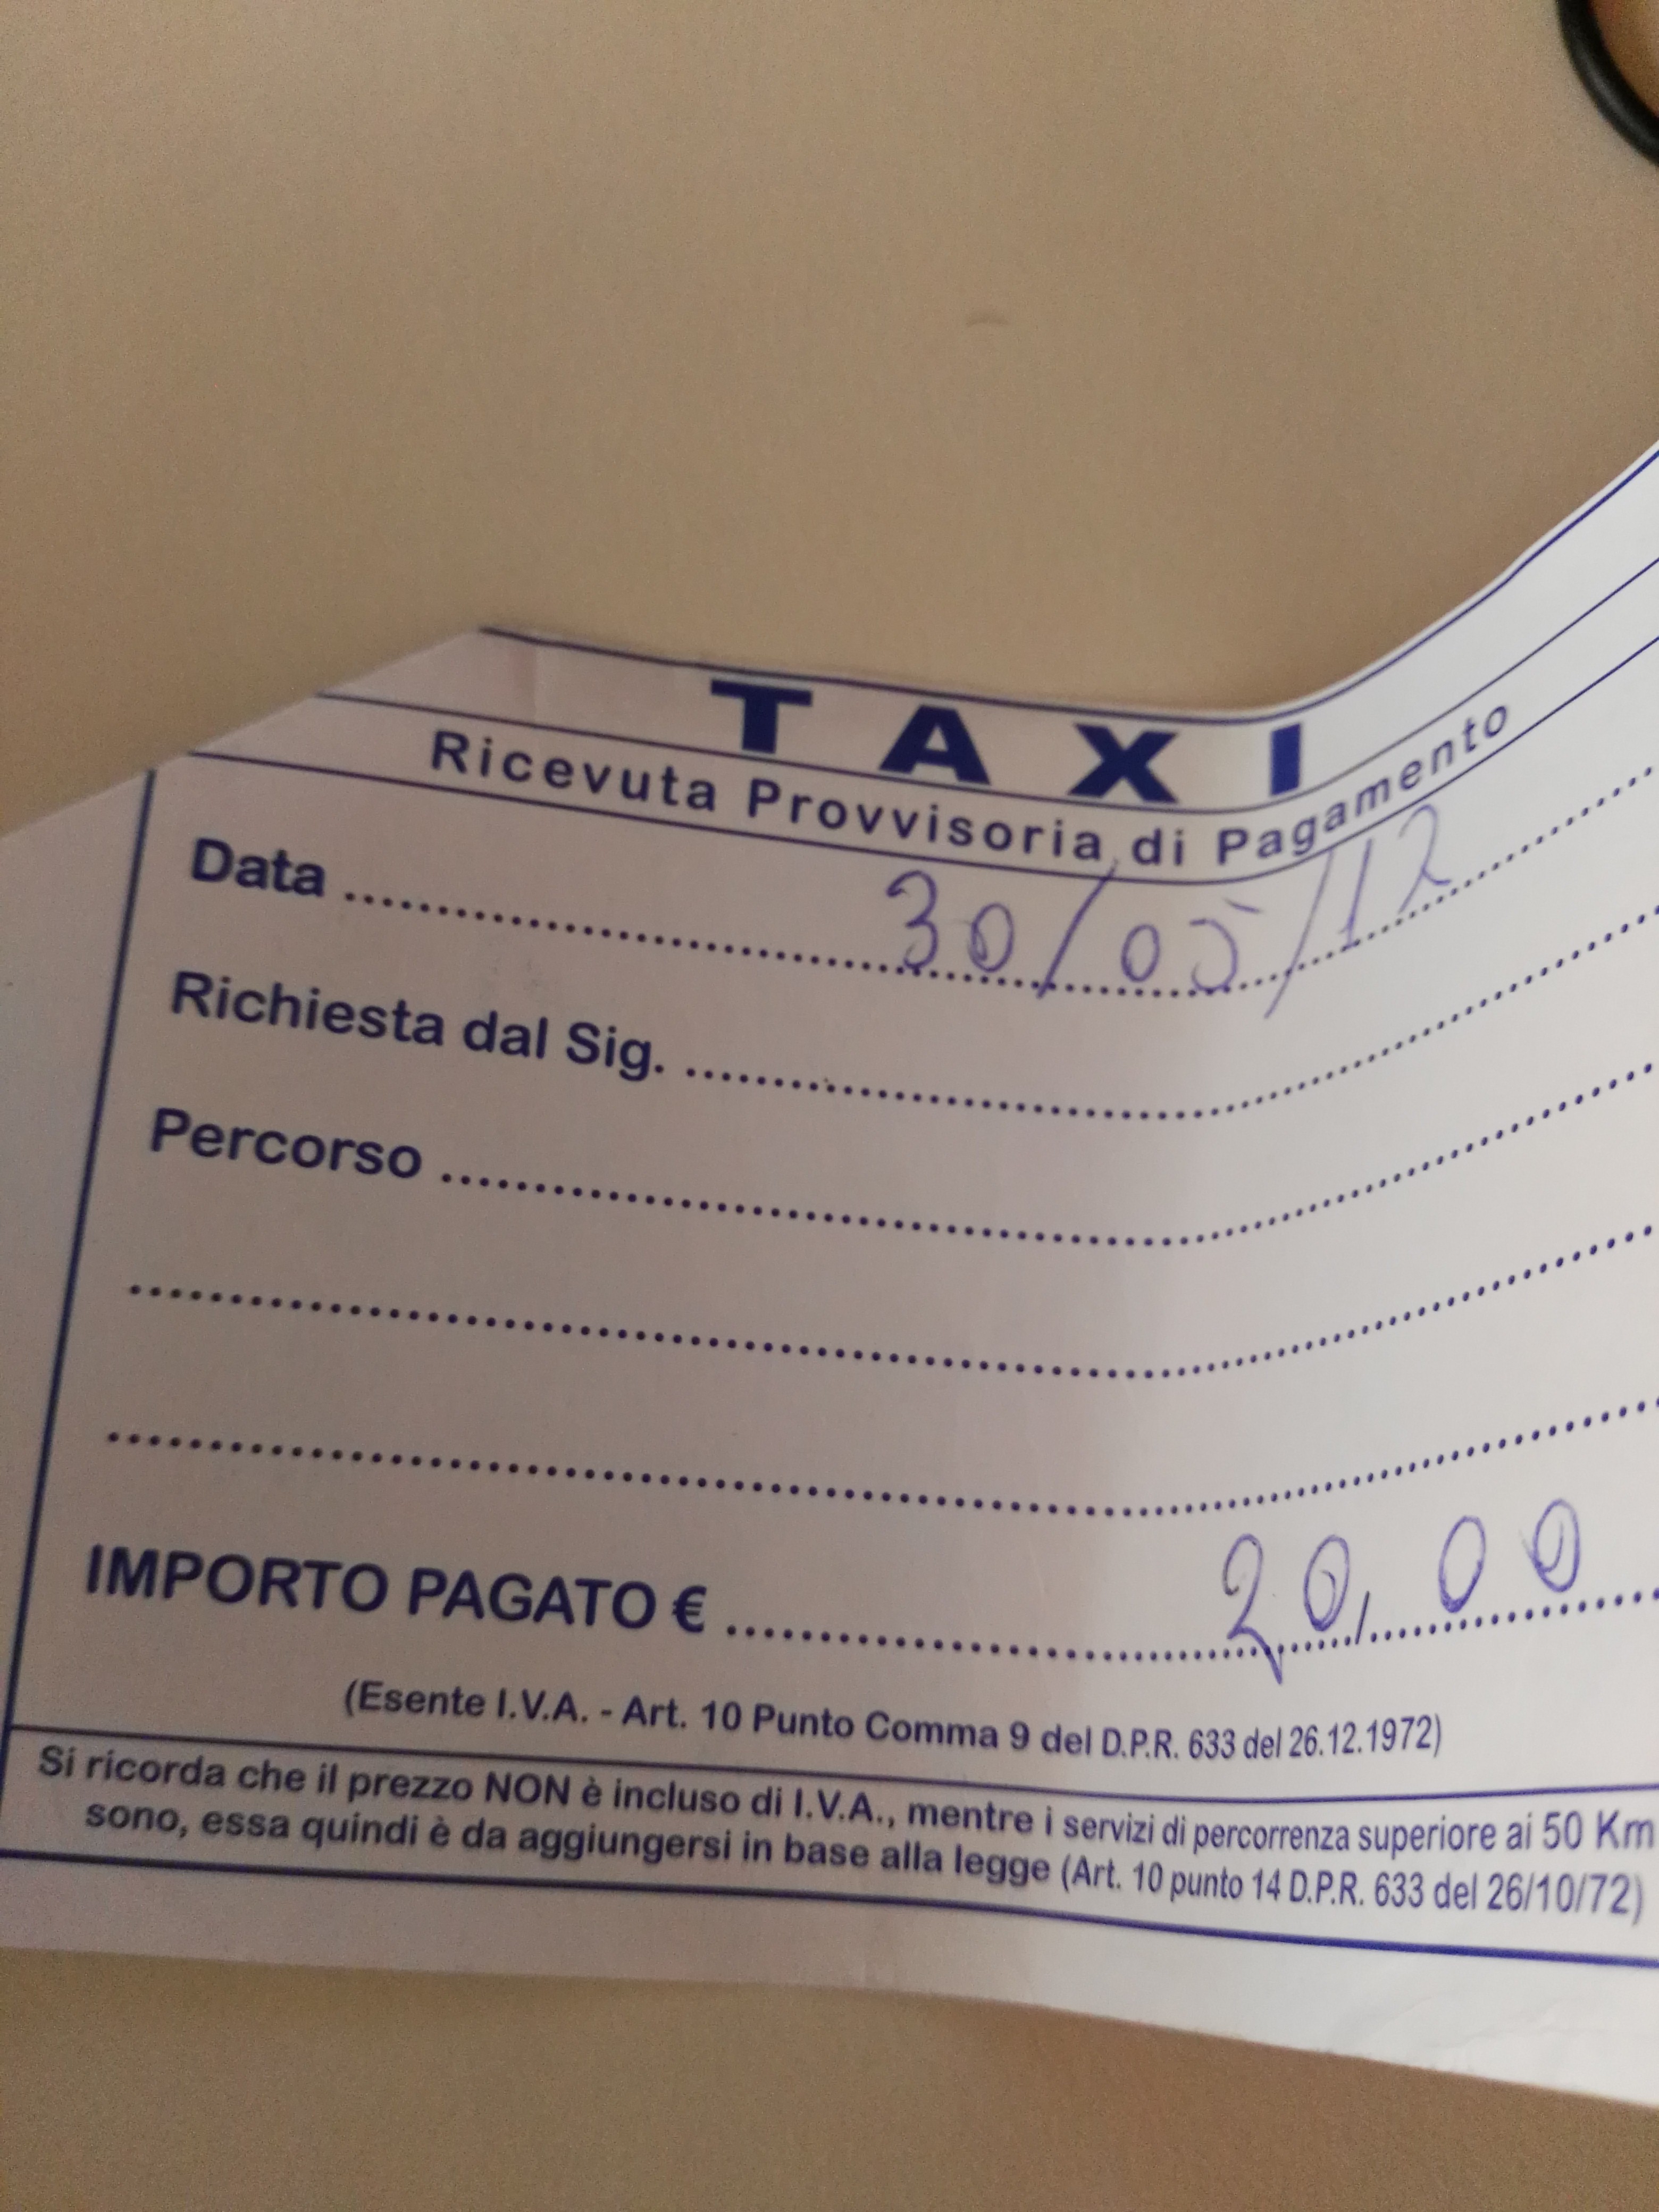 TAXI
Ricevuta Provvisoria di Pagamento
Data .......... 30/05/12 ..........
Richiesta dal Sig. ..........
Percorso ..........
IMPORTO PAGATO € .......... 20,00 ..........
(Esente I.V.A. - Art. 10 Punto Comma 9 del D.P.R. 633 del 26.12.1972)
Si ricorda che il prezzo NON è incluso di I.V.A., mentre i servizi di percorrenza superiore ai 50 Km
sono, essa quindi è da aggiungersi in base alla legge (Art. 10 punto 14 D.P.R. 633 del 26/10/72)